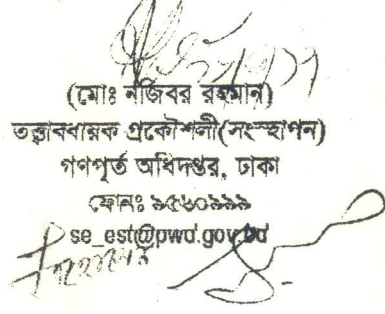 (মোঃ নজিবর রহমান)
তত্ত্বাবধায়ক প্রকৌশলী(সংস্হাপন)
গণপূর্ত অধিদপ্তর, ঢাকা
ফোনঃ ৯৫৬০৯৯৯
se_est@pwd.gov.bd